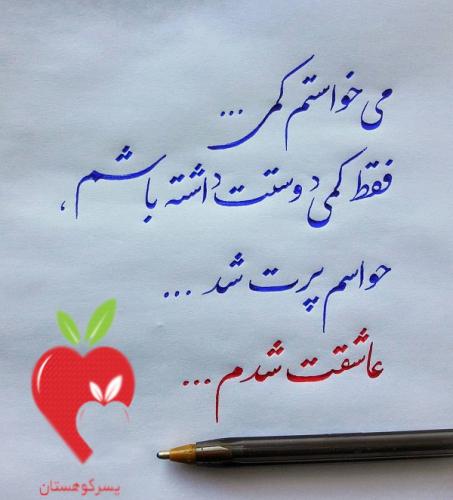 می خواستم کمی...
فقط کمی دوستت داشته باشم،
حواسم پرت شد...
عاشقت شدم...
پسرکوهستان